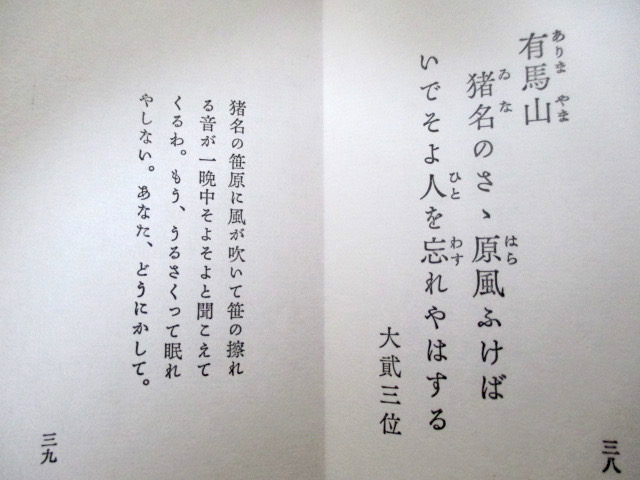 有馬山
猪名のさゝ原風ふけば
いでそよ人を忘れやはする
大貳三位
三八
猪名の笹原に風が吹いて笹の擦れ
る音が一晩中そよそよと聞こえて
くるわ。もう、うるさくって眠れ
やしない。あなた、どうにかして。
三九
ありま やま
ゐな
はら
ひと
わす